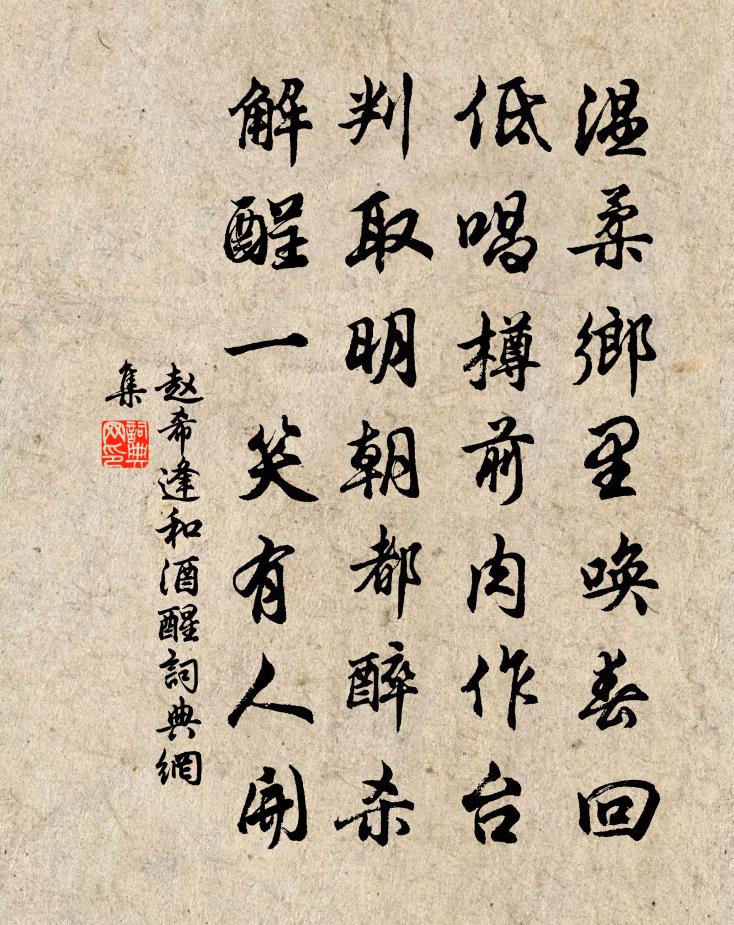 温柔鄉里唤春回
低唱樽前肉作台
判取明朝都醉杀
解酲一笑有人開
赵希逢和酒醒詞典網
集
詞典
网印